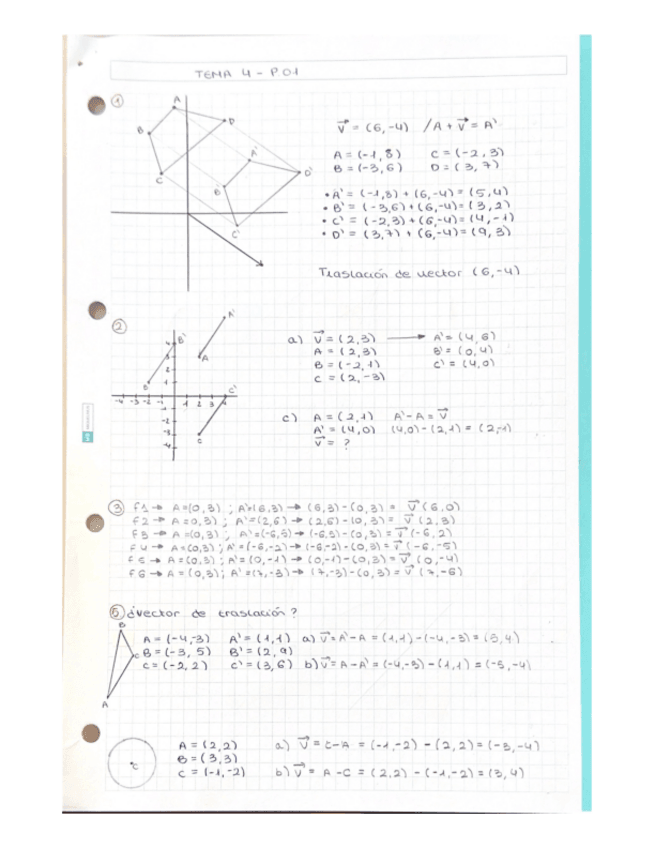 TEMA 4 - P.01
①
A
D
B
C
A'
D'
B'
C'
V = (6,-4) / A + V = A'
A = (-1,8) C = (-2,3)
B = (-3,6) D = (3,7)
• A' = (-1,8) + (6,-4) = (5,4)
• B' = (-3,6) + (6,-4) = (3,2)
• C' = (-2,3) + (6,-4) = (4,-1)
• D' = (3,7) + (6,-4) = (9,3)
Traslación de vector (6,-4)
②
A'
B'
A
B
C'
C
-4 -3 -2 -1 1 2 3 4
4
3
2
1
-1
-2
-3
-4
a) V = (2,3) → A' = (4,6)
A = (2,3) B' = (0,4)
B = (-2,1) C' = (4,0)
C = (2,-3)
c) A = (2,1) A' - A = V
A' = (4,0) (4,0) - (2,1) = (2,-1)
V = ?
③ F1 → A=(0,3) ; A'=(6,3) → (6,3)-(0,3) = V (6,0)
F2 → A=(0,3) ; A'=(2,6) → (2,6)-(0,3) = V (2,3)
F3 → A=(0,3) ; A'=(-6,5) → (-6,5)-(0,3) = V (-6,2)
F4 → A=(0,3) ; A'=(-6,-2) → (-6,-2)-(0,3) = V (-6,-5)
F5 → A=(0,3) ; A'=(0,-1) → (0,-1)-(0,3) = V (0,-4)
F6 → A=(0,3) ; A'=(7,-3) → (7,-3)-(0,3) = V (7,-6)
⑤ ¿Vector de traslación?
B
C
A
A = (-4,-3) A' = (1,1) a) V = A'-A = (1,1)-(-4,-3) = (5,4)
B = (-3,5) B' = (2,9)
C = (-2,2) C' = (3,6) b) V = A-A' = (-4,-3)-(1,1) = (-5,-4)
C
A = (2,2) a) V = C-A = (-1,-2) - (2,2) = (-3,-4)
B = (3,3)
C = (-1,-2) b) V = A-C = (2,2) - (-1,-2) = (3,4)